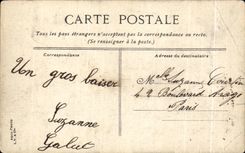 CARTE POSTALE
Tous les pays étrangers n'acceptent pas la correspondance au recto.
(Se renseigner à la poste)
Correspondance
Adresse du destinataire
Un gros baiser
Suzanne
Galut
Mlle Suzanne
42 Boulevard Arago
Paris